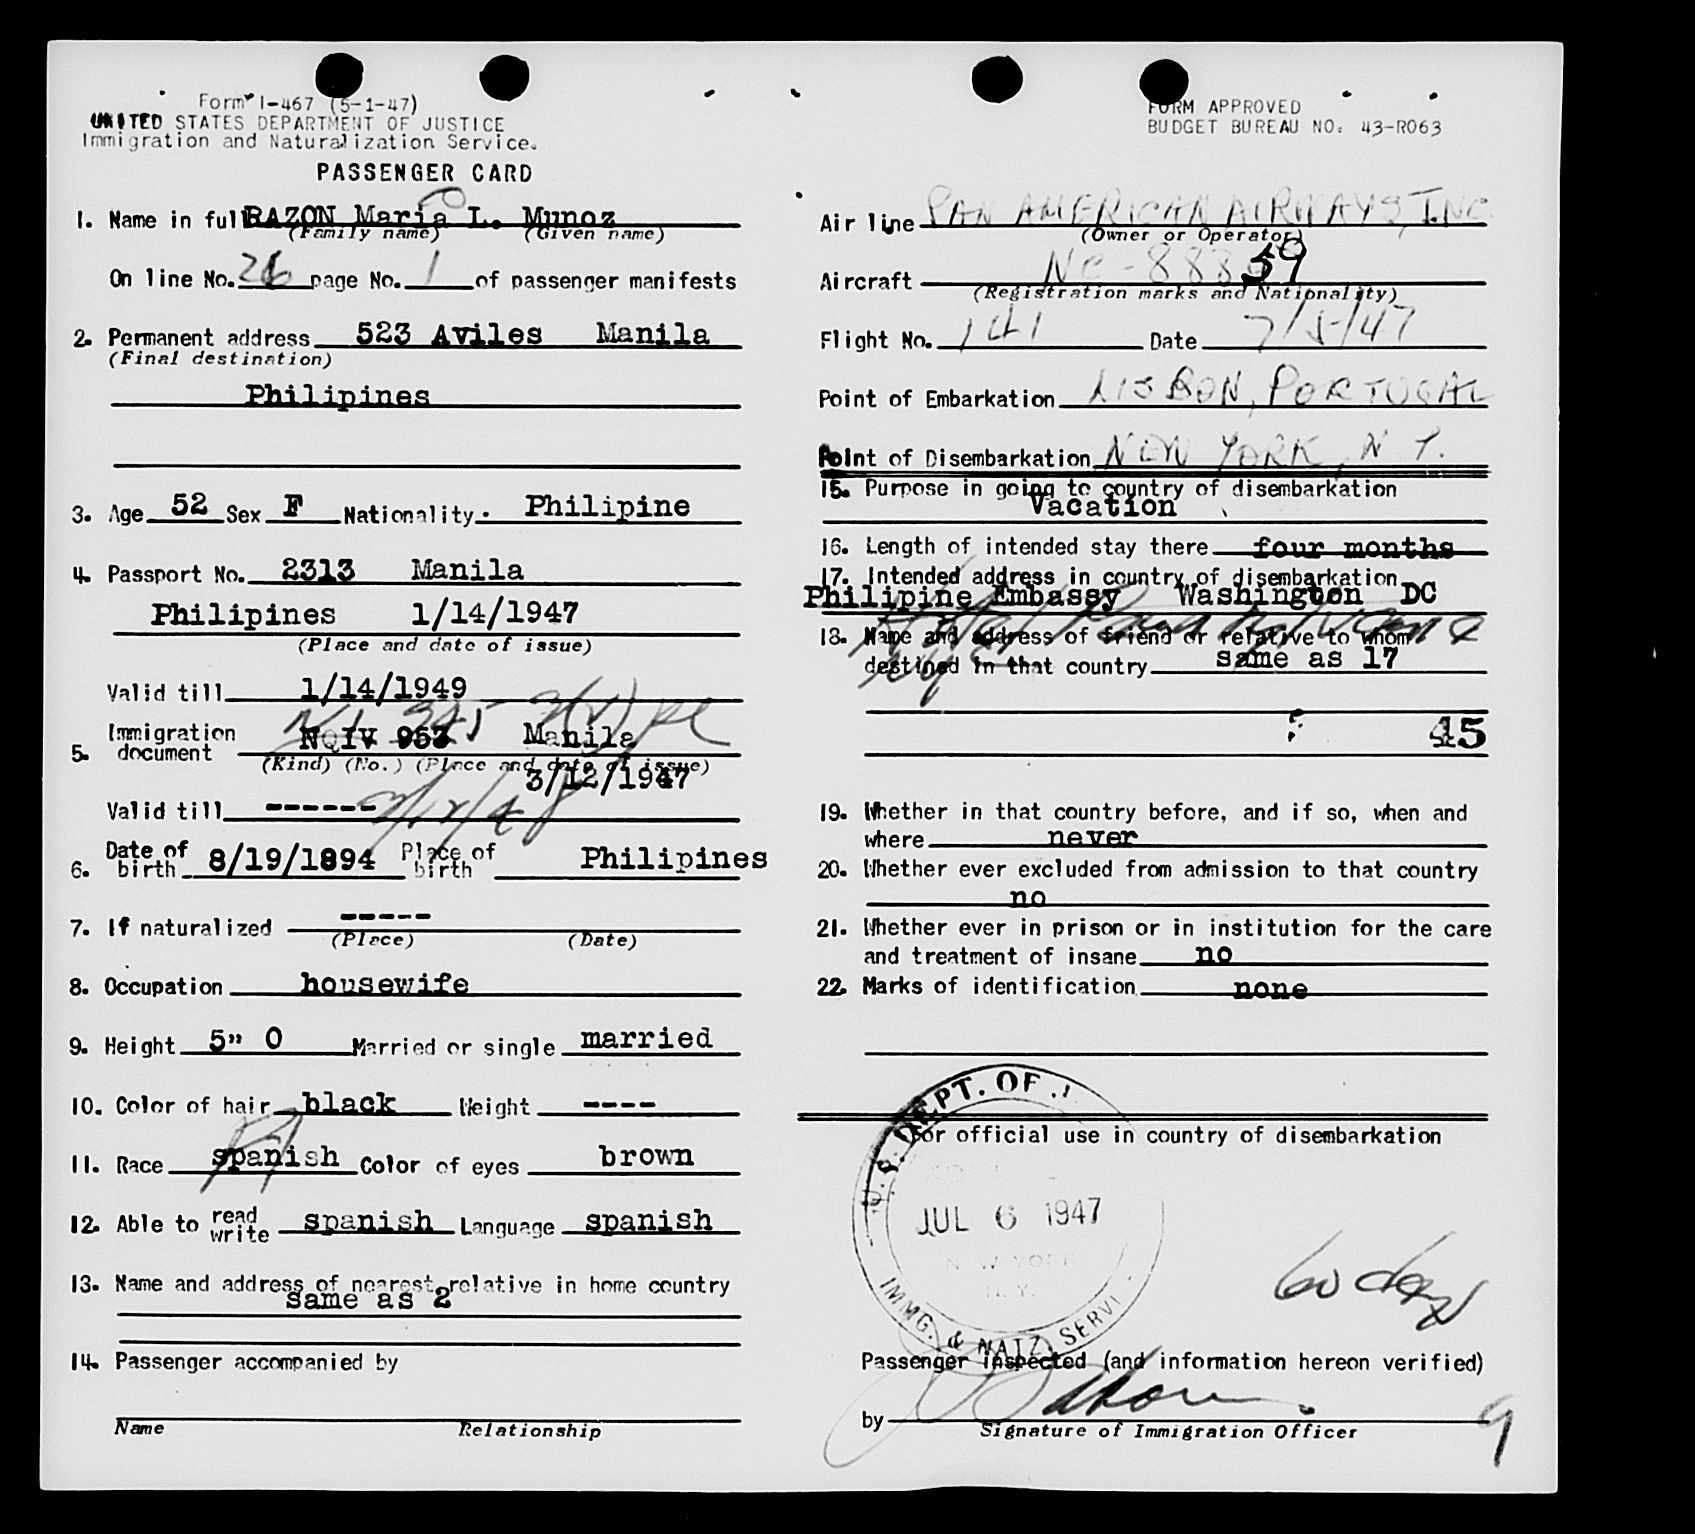 Form I-467 (5-1-47)
UNITED STATES DEPARTMENT OF JUSTICE
Immigration and Naturalization Service.
PASSENGER CARD
1. Name in full RAZON Maria L. Munoz
(Family name) (Given name)
On line No. 26 page No. 1 of passenger manifests
2. Permanent address 523 Aviles Manila
(Final destination)
Philipines
3. Age 52 Sex F Nationality. Philipine
4. Passport No. 2313 Manila
Philipines 1/14/1947
(Place and date of issue)
Valid till 1/14/1949
5. Immigration document NQIV 953 Manila
(Kind) (No.) (Place and date of issue)
3/12/1947
Valid till ------
6. Date of birth 8/19/1894 Place of birth Philipines
7. If naturalized -----
(Place) (Date)
8. Occupation housewife
9. Height 5" 0 Married or single married
10. Color of hair black Weight ----
11. Race spanish Color of eyes brown
12. Able to read write spanish Language spanish
13. Name and address of nearest relative in home country
same as 2
14. Passenger accompanied by
Name Relationship
FORM APPROVED
BUDGET BUREAU NO. 43-R063
Air line PAN AMERICAN AIRWAYS, INC.
(Owner or Operator)
Aircraft NC-88859
(Registration marks and Nationality)
Flight No. 141 Date 7/5/47
Point of Embarkation LISBON, PORTUGAL
Point of Disembarkation NEW YORK, N.Y.
15. Purpose in going to country of disembarkation
Vacation
16. Length of intended stay there four months
17. Intended address in country of disembarkation
Philipine Embassy Washington DC
18. Name and address of friend or relative to whom
destined in that country same as 17
45
19. Whether in that country before, and if so, when and
where never
20. Whether ever excluded from admission to that country
no
21. Whether ever in prison or in institution for the care
and treatment of insane no
22. Marks of identification none
For official use in country of disembarkation
U.S. DEPT. OF J
JUL 6 1947
NEW YORK
N.Y.
IMMG. & NATZ. SERVI
60 days
Passenger inspected (and information hereon verified)
by
Signature of Immigration Officer
9